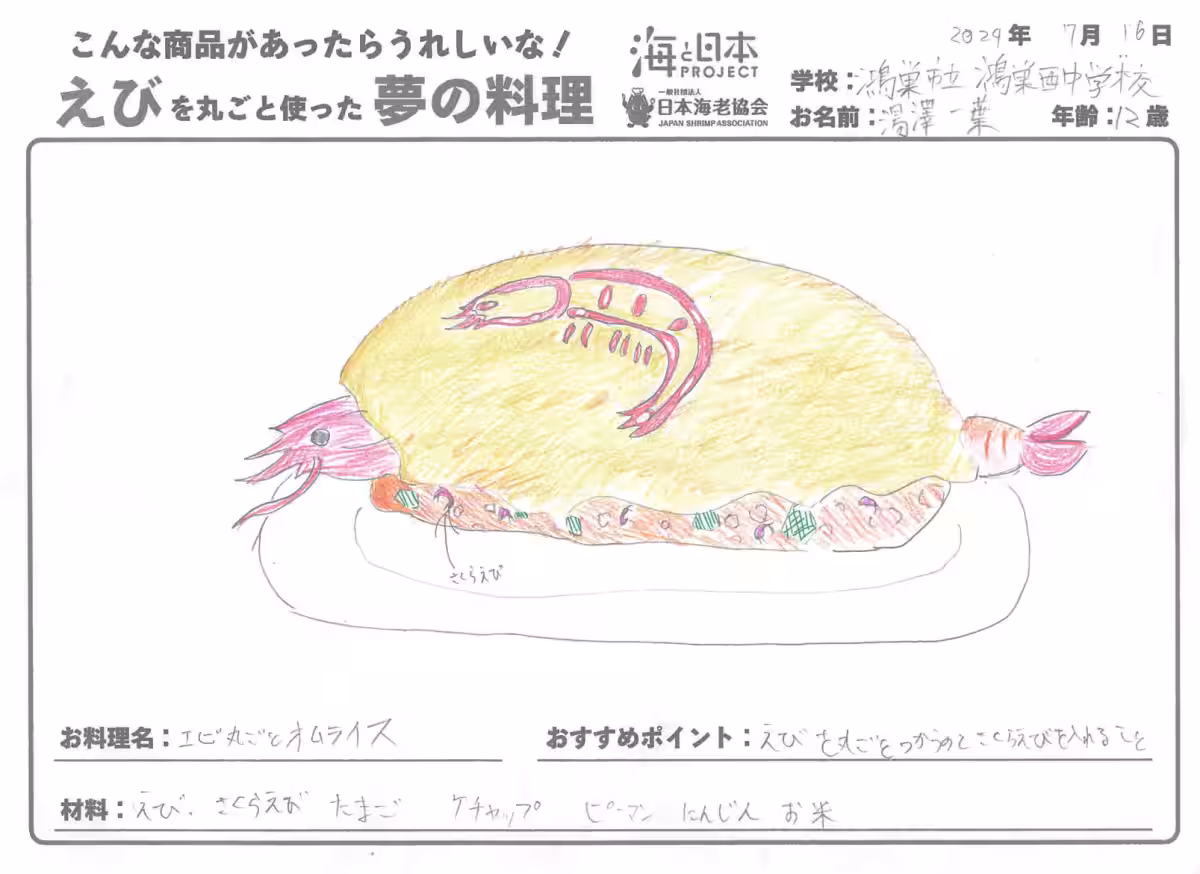 こんな商品があったらうれしいな!
えびを丸ごと使った夢の料理
海と日本
PROJECT
一般社団法人
日本海老協会
JAPAN SHRIMP ASSOCIATION
2024年 7月 16日
学校:鴻巣市立 鴻巣西中学校
お名前:湯澤 一葉 年齢:12歳
さくらえび
お料理名:エビ丸ごとオムライス
おすすめポイント:えびを丸ごとつかうのとさくらえびを入れること
材料:えび. さくらえび たまご ケチャップ ピーマン にんじん お米